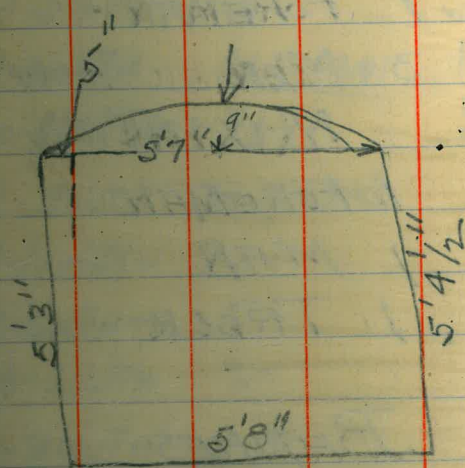 5"
9"
5'7"
5'3"
5'4 1/2"
5'8"